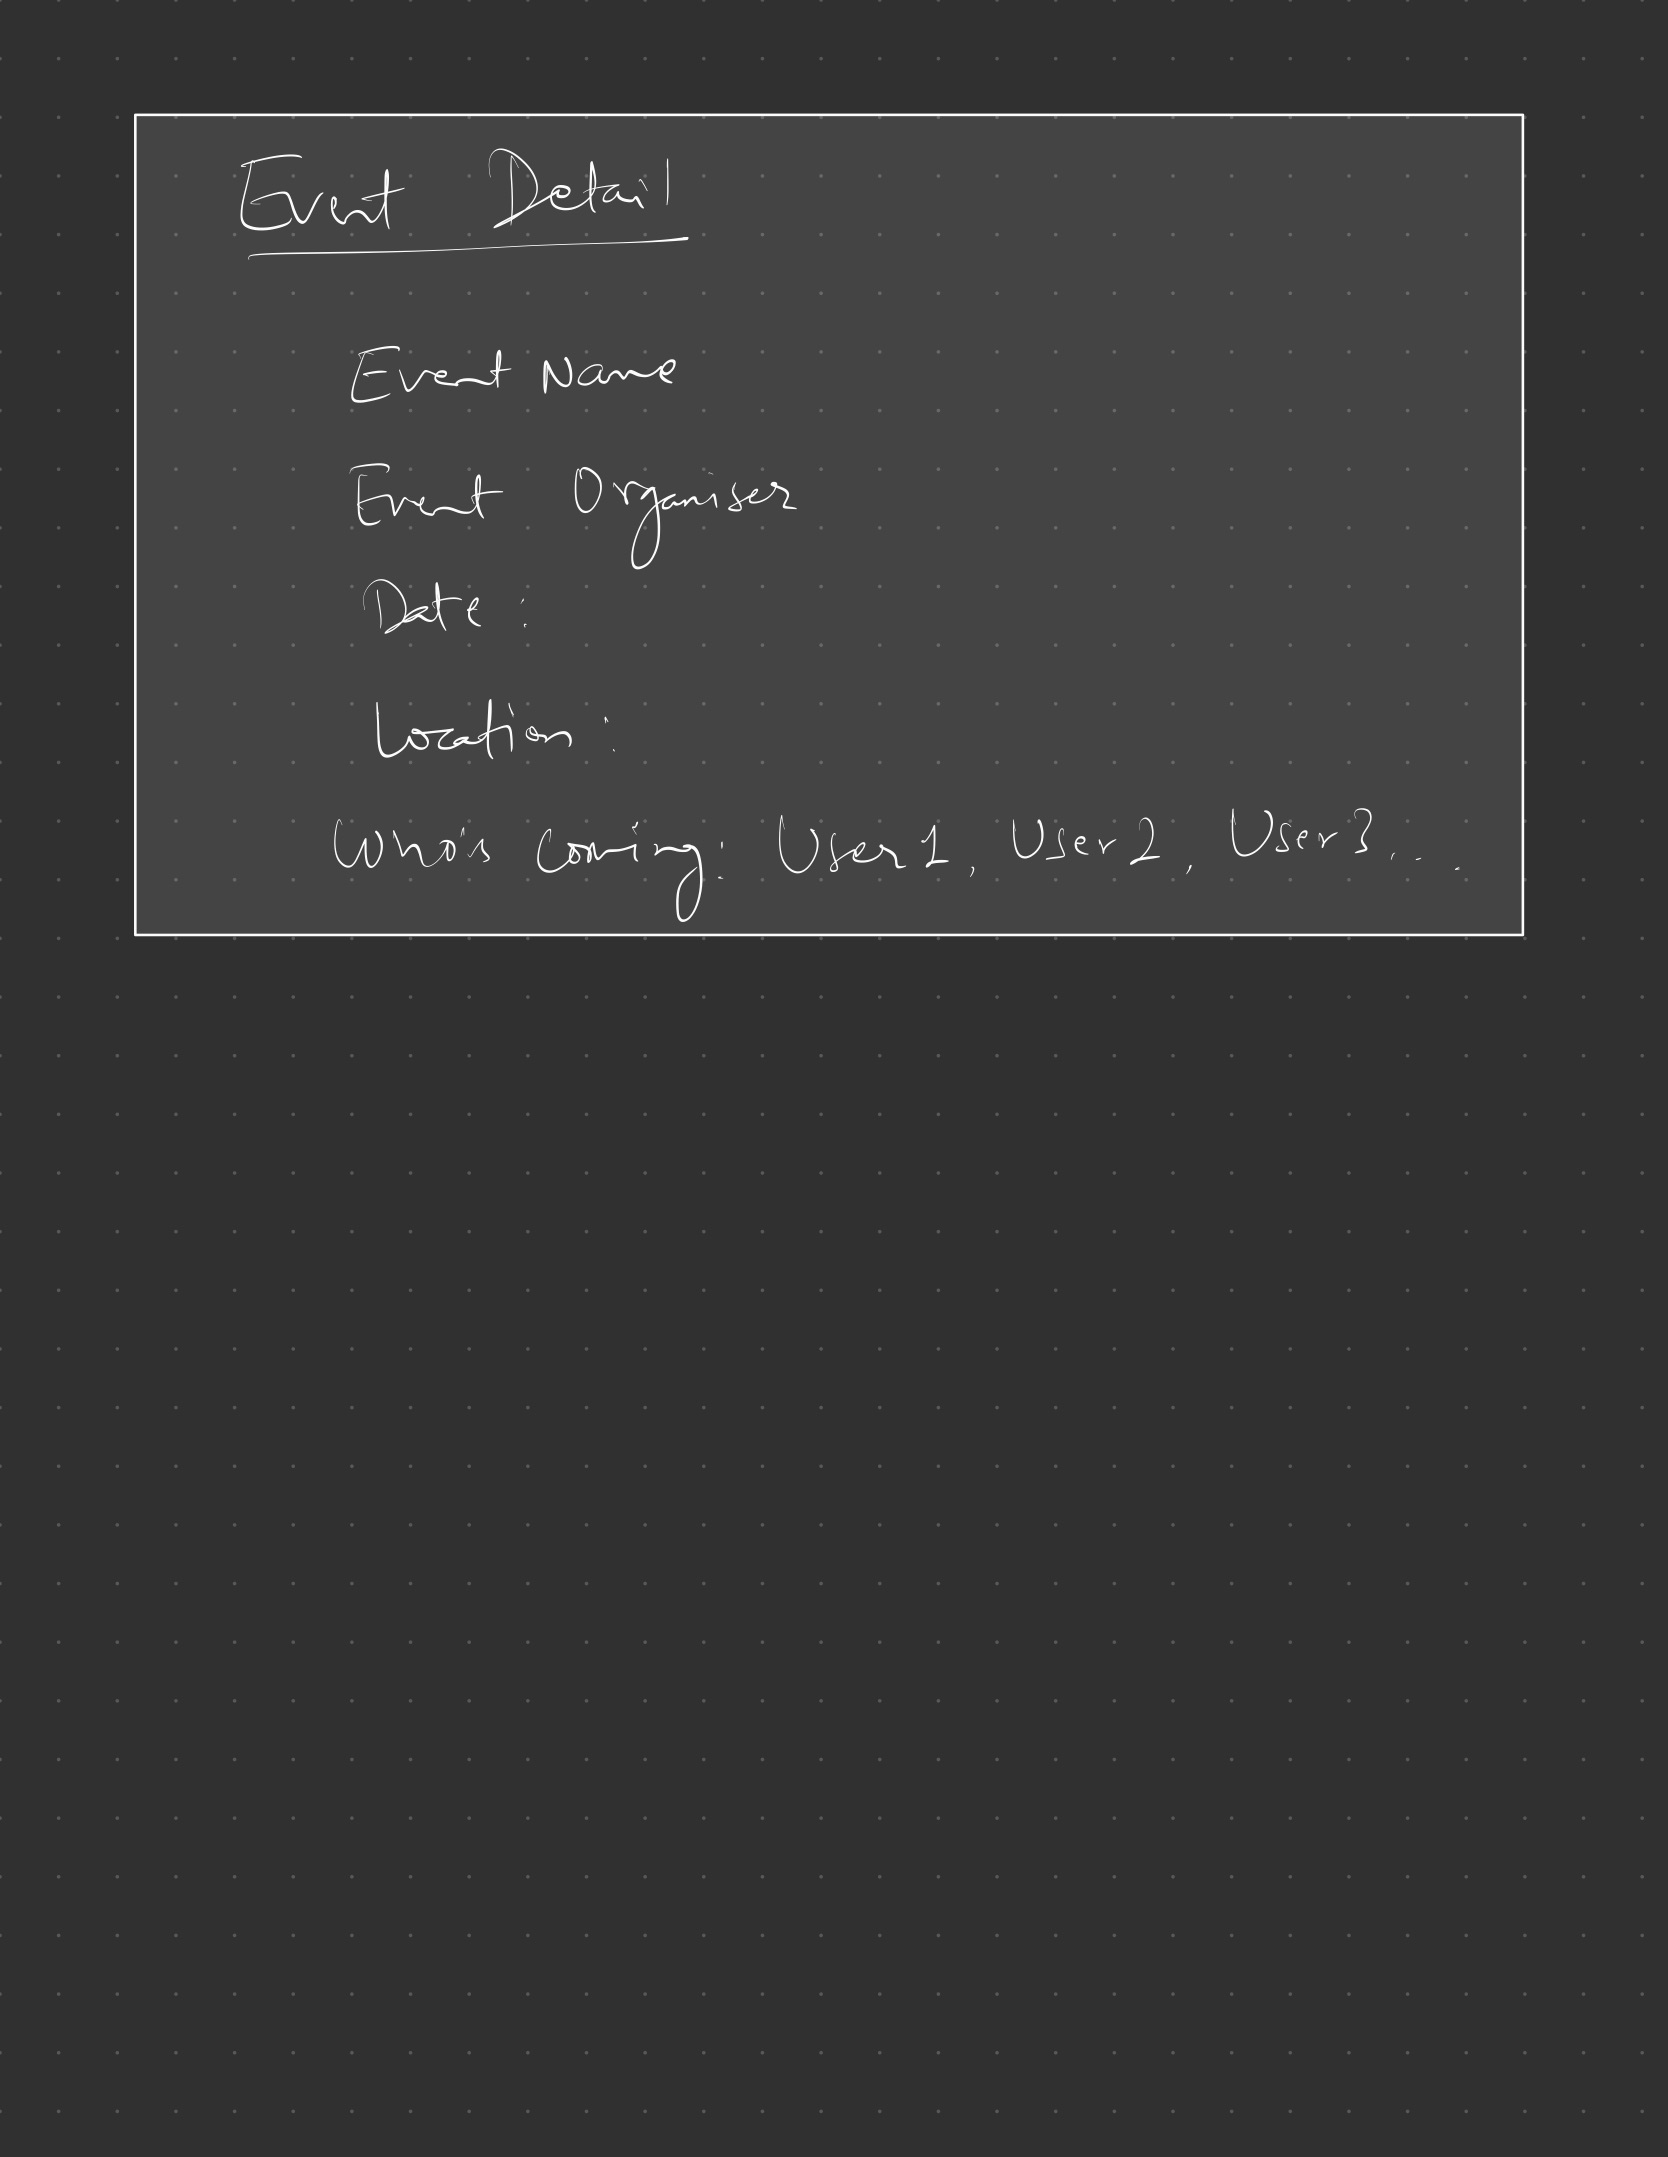 Event Detail
Event Name
Event Organiser
Date :
Location :
Who's Coming: User 1, User 2, User 3...